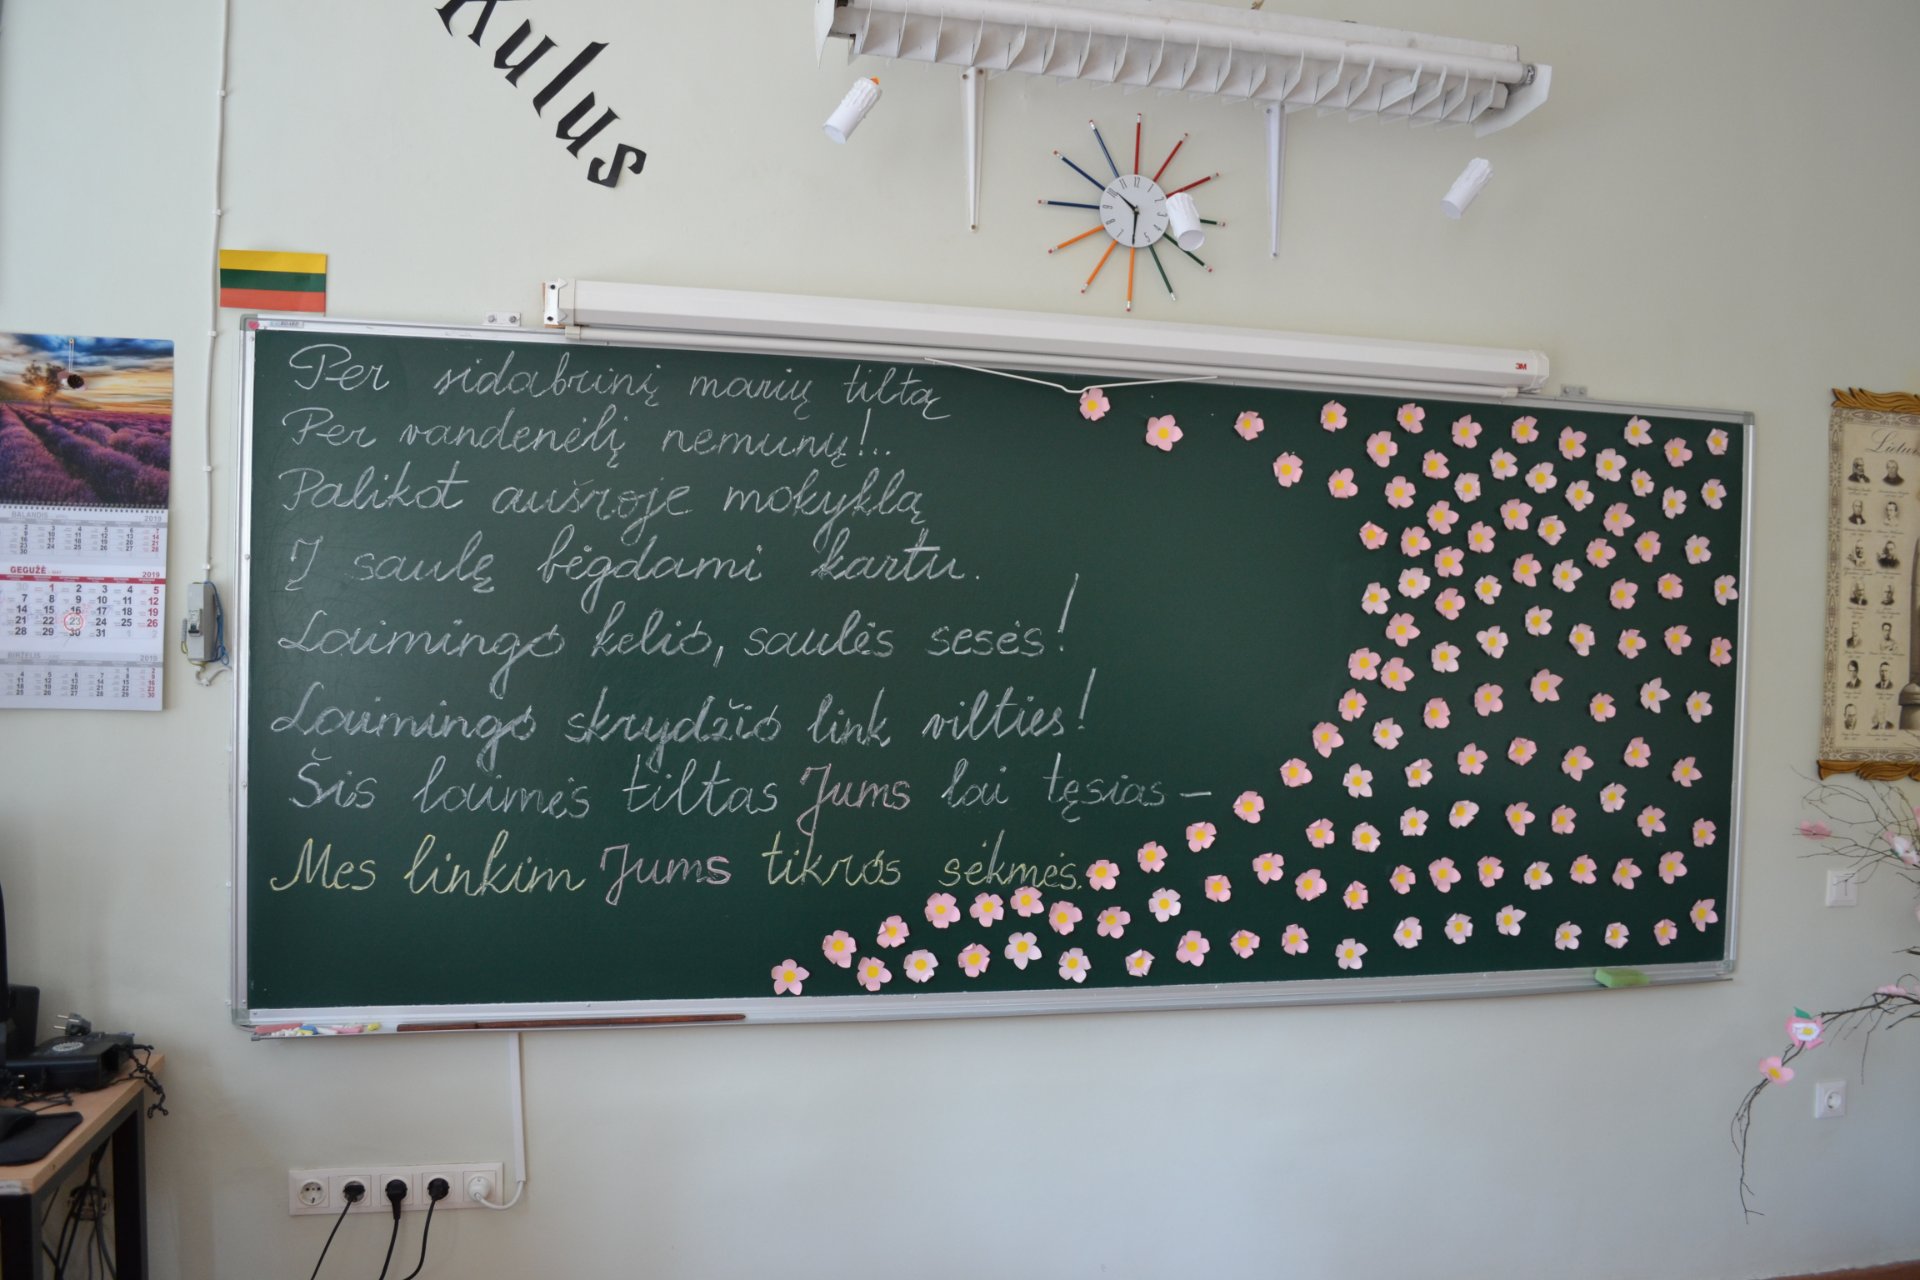 Kulus
3M
Per sidabrinį marių tiltą
Per vandenėlį nemunų!...
Palikot aušroje mokyklą
Į saulę bėgdami kartu.
Laimingo kelio, saulės sesės!
Laimingo skrydžio link vilties!
Šis laimės tiltas Jums lai tęsias –
Mes linkim Jums tikros sėkmės.
BALANDIS 2019
GEGUŽĖ 2019
30 1 2 3 4 5
7 8 9 10 11 12
14 15 16 17 18 19
21 22 23 24 25 26
28 29 30 31 1 2
BIRŽELIS 2019